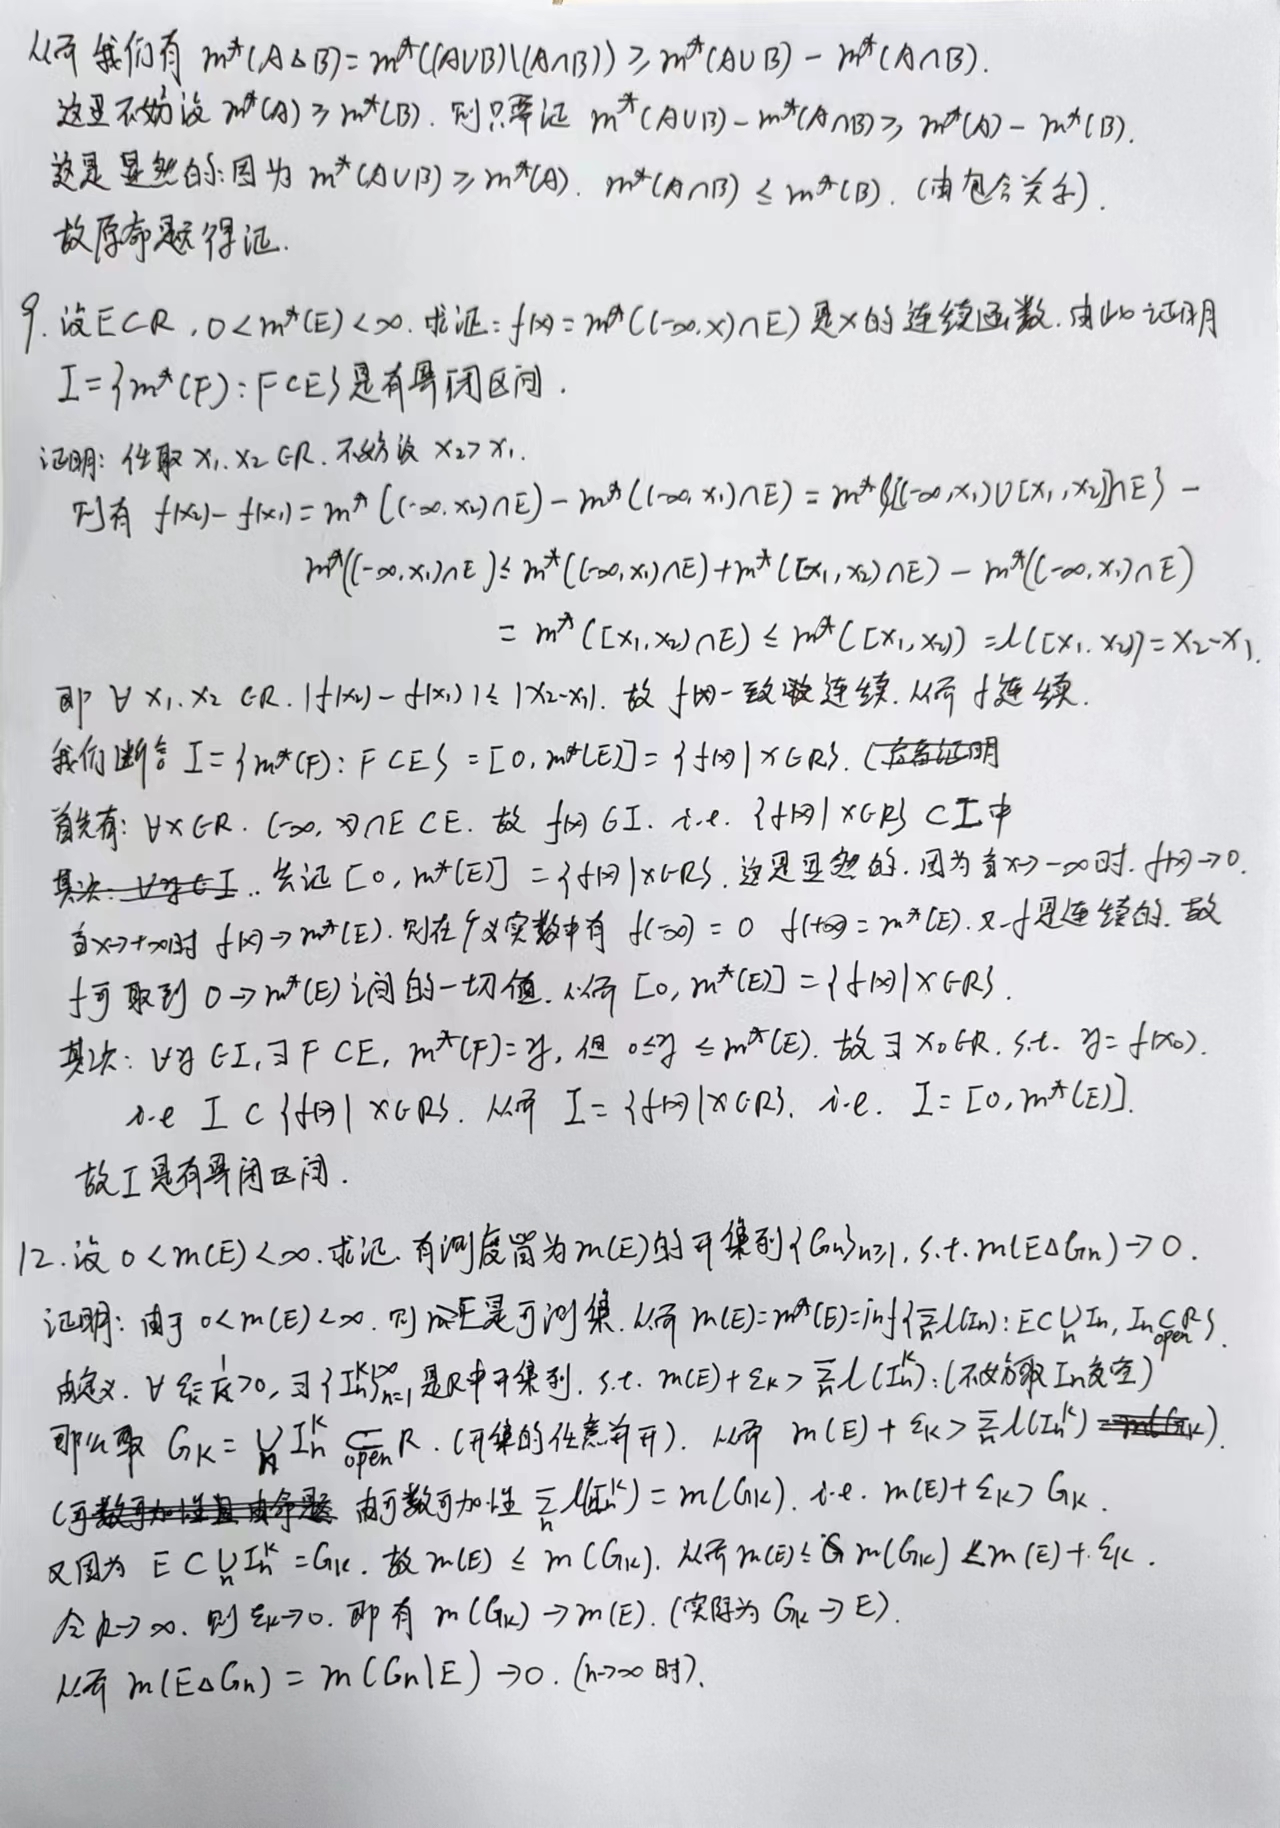 从而我们有 m*(A△B)=m*((A∪B)\(A∩B)) ≥ m*(A∪B) - m*(A∩B).
这里不妨设 m*(A) ≥ m*(B). 则只要证 m*(A∪B)-m*(A∩B) ≥ m*(A) - m*(B).
这是显然的:因为 m*(A∪B) ≥ m*(A). m*(A∩B) ≤ m*(B). (由包含关系).
故原命题得证.
9. 设E⊂R, 0<m*(E)<∞. 求证: f(x)=m*((-∞,x)∩E) 是x的连续函数. 由此证明
I={m*(F): F⊂E}是有界闭区间.
证明: 任取 x₁.x₂∈R. 不妨设 x₂>x₁.
则有 f(x₂)-f(x₁)=m*((-∞,x₂)∩E)-m*((-∞,x₁)∩E)=m*{[(-∞,x₁)∪[x₁,x₂)]∩E} -
m*((-∞,x₁)∩E) ≤ m*((-∞,x₁)∩E)+m*([x₁,x₂)∩E) - m*((-∞,x₁)∩E)
= m*([x₁,x₂)∩E) ≤ m*([x₁,x₂)) = l([x₁.x₂))=x₂-x₁.
即 ∀ x₁.x₂∈R. |f(x₂)-f(x₁)| ≤ |x₂-x₁|. 故 f(x)一致连续. 从而 f连续.
我们断言 I={m*(F): F⊂E}=[0,m*(E)]={f(x)|x∈R}.
首先有: ∀x∈R. (-∞,x)∩E⊂E. 故 f(x)∈I. i.e. {f(x)|x∈R}⊂I中
去证 [0,m*(E)]={f(x)|x∈R}. 这是显然的. 因为当x→-∞时. f(x)→0.
当x→+∞时 f(x)→m*(E). 则在广义实数中有 f(-∞)=0 f(+∞)=m*(E). 又f是连续的. 故
f可取到 0→m*(E)之间的一切值. 从而 [0,m*(E)]={f(x)|x∈R}.
其次: ∀y∈I, ∃F⊂E, m*(F)=y, 但 0≤y≤m*(E). 故∃x₀∈R. s.t. y=f(x₀).
i.e I⊂{f(x)|x∈R}. 从而 I={f(x)|x∈R}. i.e. I=[0,m*(E)].
故I是有界闭区间.
12. 设 0<m(E)<∞. 求证. 有测度皆为m(E)的开集列{Gn}n≥1, s.t. m(E△Gn)→0.
证明: 由于 0<m(E)<∞. 则E是可测集. 从而 m(E)=m*(E)=inf{∑ₙl(In): E⊂∪ₙIn, In⊂open R}.
由定义. ∀ εk=1/k>0, ∃{Iₙᵏ}∞n=1 是R中开集列. s.t. m(E)+εk>∑ₙl(Iₙᵏ).(不妨取In交空)
那么取 Gk=∪ₙIₙᵏ⊂open R. (开集的任意并开). 从而 m(E)+εk>∑ₙl(Iₙᵏ)
由可数可加性 ∑ₙl(Iₙᵏ)=m(Gk). i.e. m(E)+εk>Gk.
又因为 E⊂∪ₙIₙᵏ=Gk. 故m(E) ≤ m(Gk). 从而 m(E) ≤ m(Gk) ≤ m(E)+εk.
令k→∞. 则 εk→0. 即有 m(Gk)→m(E). (实际为 Gk→E).
从而 m(E△Gn)=m(Gn\E)→0. (n→∞时).